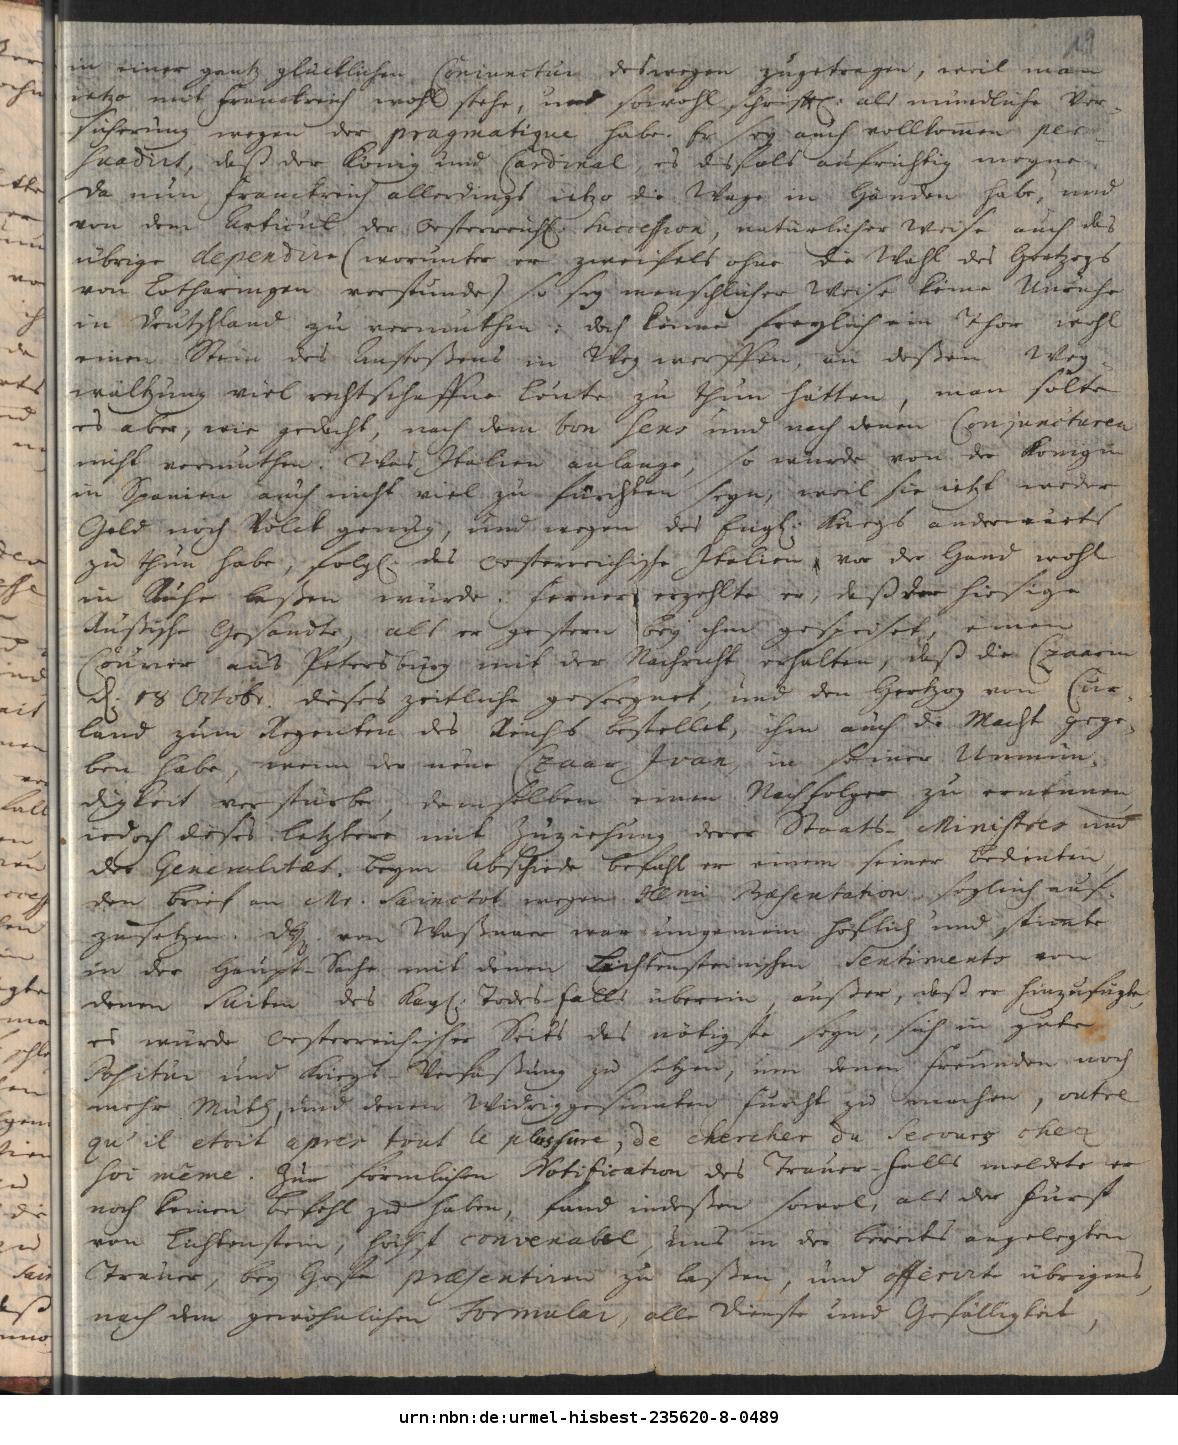 19
in einer gantz glücklichen Conjunctur deswegen zugetragen, weil man
ietzo mit Franckreich wohl stehe, und sowohl schriftl: als mündliche Ver-
sicherung wegen der pragmatique habe. Er sey auch vollkommen per-
suadirt, daß der König und Cardinal, es disfals aufrichtig meyne.
Da nun Franckreich allerdings ietzo die Wage in Händen habe, und
von dem Articul der oesterreichl. Succession, natürlicher Weise auch das
übrige dependire (worunter er zweifels ohne die Wahl des Hertzogs
von Lotharingen verstunde) so sey menschlicher Weise keine Unruhe
in Teutschland zu vermuthen: doch könne freylich ein Thor wohl
einen Stein des Anstoßens in Weg werffen, an deßen Weg-
wältzung viel rechtschaffne Leute zu thun hätten, man solte
es aber, wie gedacht, nach dem bon sens und nach denen Conjuncturen
nicht vermuthen. Was Italien anlange, so würde von der Königin
in Spanien auch nicht viel zu fürchten seyn, weil sie ietzt weder
Geld noch Volck genug, und wegen des Engl: Kriegs anderwärts
zu thun habe, folgl: das oesterreichische Italien vor der Hand wohl
in Ruhe laßen würde. Ferner erzehlte er, daß der hiesige
Rußische Gesandte, als er gestern bey ihm gespeiset, einen
Courier aus Petersburg mit der Nachricht erhalten, daß die Czaarin
d. 18 Octobr. dieses zeitliche gesegnet, und den Hertzog von Cur-
land zum Regenten des Reichs bestellet, ihm auch die Macht gege-
ben habe, wenn der neue Czaar Ivan, in seiner Unmün-
digkeit verstürbe, demselben einen Nachfolger zu ernennen,
iedoch dieses letztere mit Zuziehung derer Staats-Ministres und
der Generalitæt. Beym Abschiede befahl er einem seiner Bedienten,
den Brief an Mr. Sainctot wegen Præsentation, sogleich auf-
zusetzen. von Waßnaer war ungemein höflich und stimte
in der Haupt-Sache mit denen Lichtensteinischen Sentiments von
denen Suiten des Kayl: Todes-Falls überein, außer, daß er hinzufügte,
es würde oesterreichischer Seits das nötigste seyn, sich in gute
Positur und Kriegs-Verfaßung zu setzen, um denen Freunden noch
mehr Muth, und denen Widriggesinnten Furcht zu machen, outre
qu'il etoit apres tout le plus sure, de chercher du Secours chez
soi même. Zur förmlichen Notification des Trauer-Falls meldete er
noch keinen Befehl zu haben, fand indeßen sowol, als der Fürst
von Lichtenstein, höchst convenabel, uns in der bereits angelegten
Trauer, bey Hofe præsentiren zu laßen, und offerirte übrigens,
nach dem gewöhnlichen Formular, alle Dienste und Gefälligkeit,
urn:nbn:de:urmel-hisbest-235620-8-0489